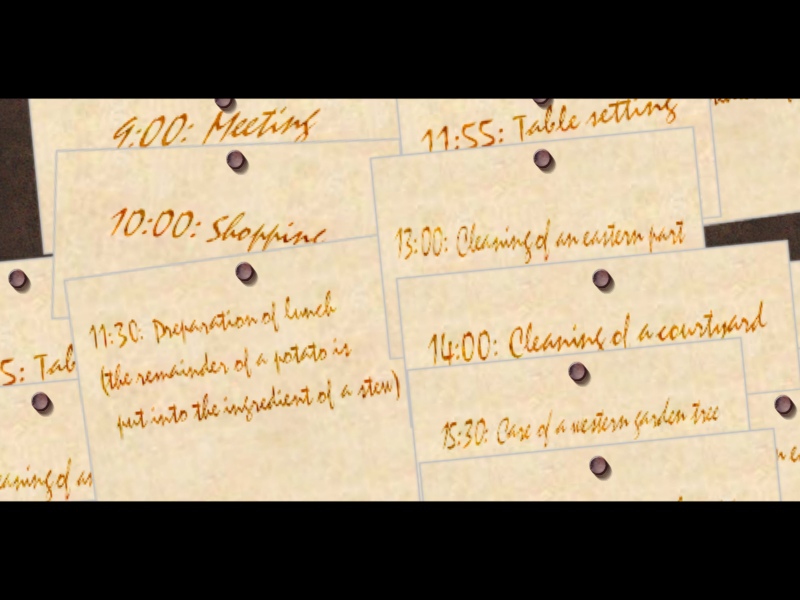 9:00: Meeting
10:00: Shopping
11:30: Preparation of lunch
(the remainder of a potato is
put into the ingredient of a stew)
5: Tab
eaning of an
11:55: Table setting
13:00: Cleaning of an eastern part
14:00: Cleaning of a courtyard
15:30: Care of a western garden tree